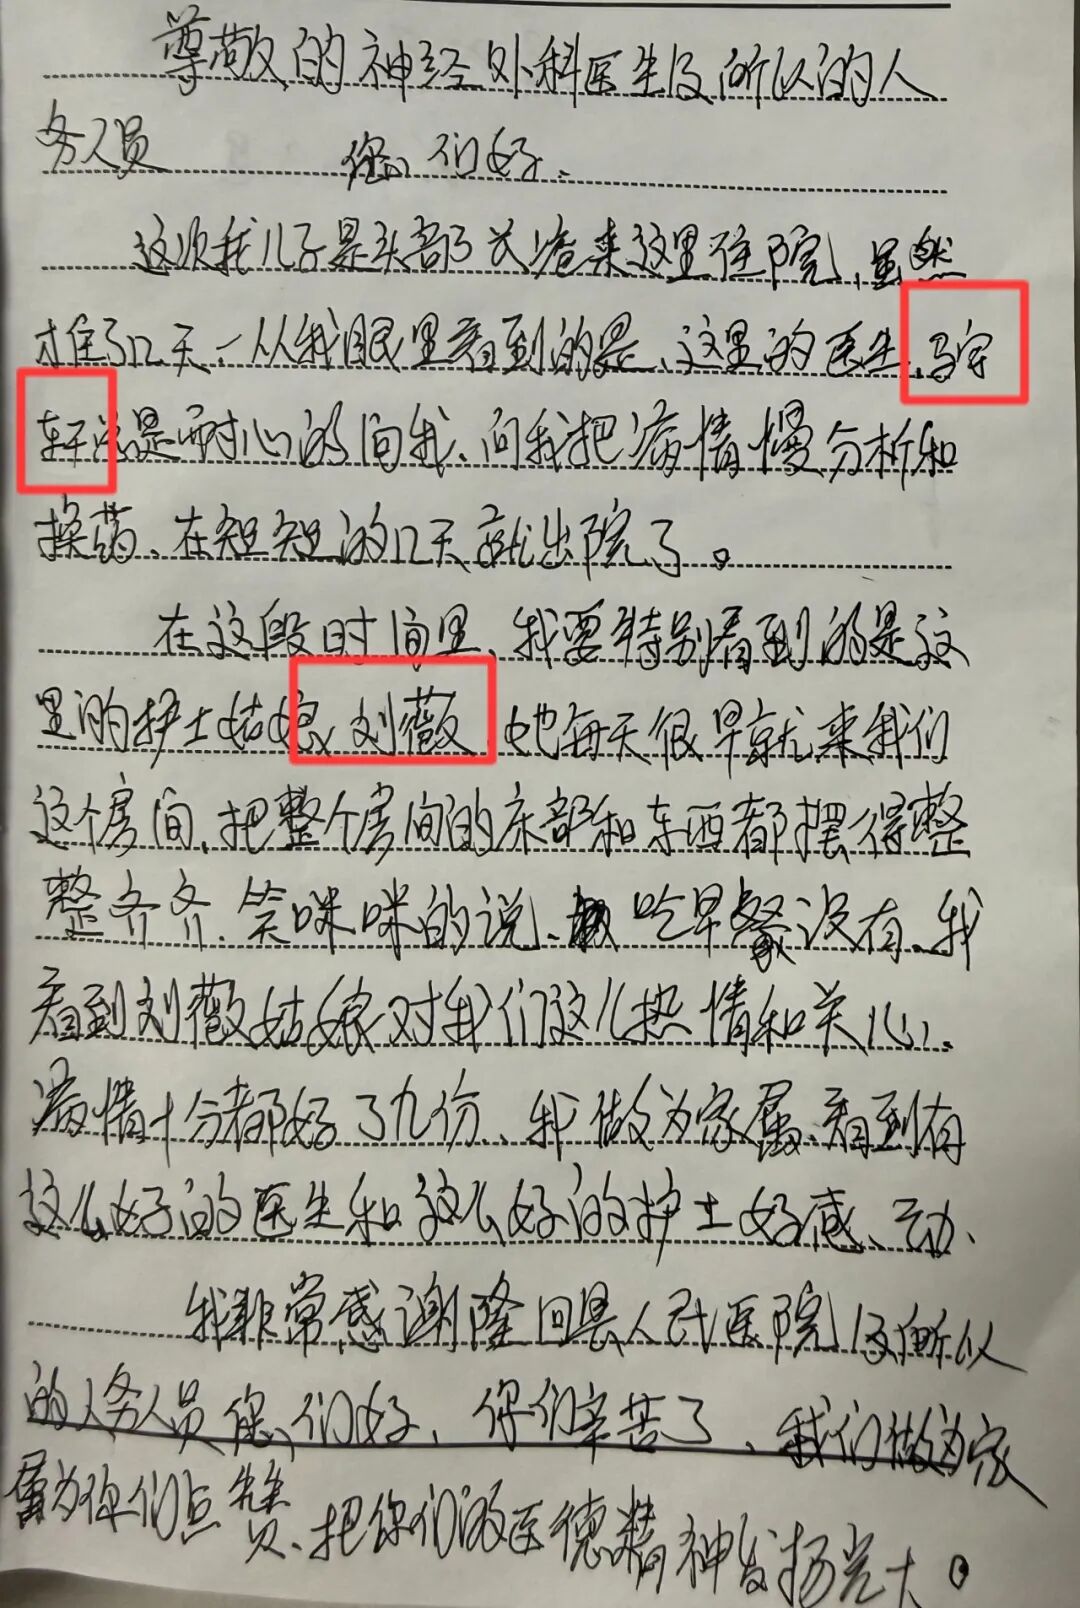 尊敬的神经外科医生及所以的人
务人员 您们好、
这次我儿子是头部长疮来这里住院、虽然
才住了12天、从我眼里看到的是、这里的医生、马宇
轩总是耐心的问我、问我把病情慢分析和
换药、在短短的12天就出院了。
在这段时间里、我要特别看到的是这
里的护士姑娘、刘薇 她每天很早就来我们
这个房间、把整个房间的床部和东西都摆得整
整齐齐、笑咪咪的说、吃早餐没有、我
看到刘薇姑娘对我们这儿热情和关心、
病情十分都好了九份、我做为家属、看到有
这么好的医生和这么好的护士好感、动、
我非常感谢隆回县人民医院及所以
的人务人员您们好、你们辛苦了、我们做为家
属为你们点赞、把你们的医德精神发扬光大。